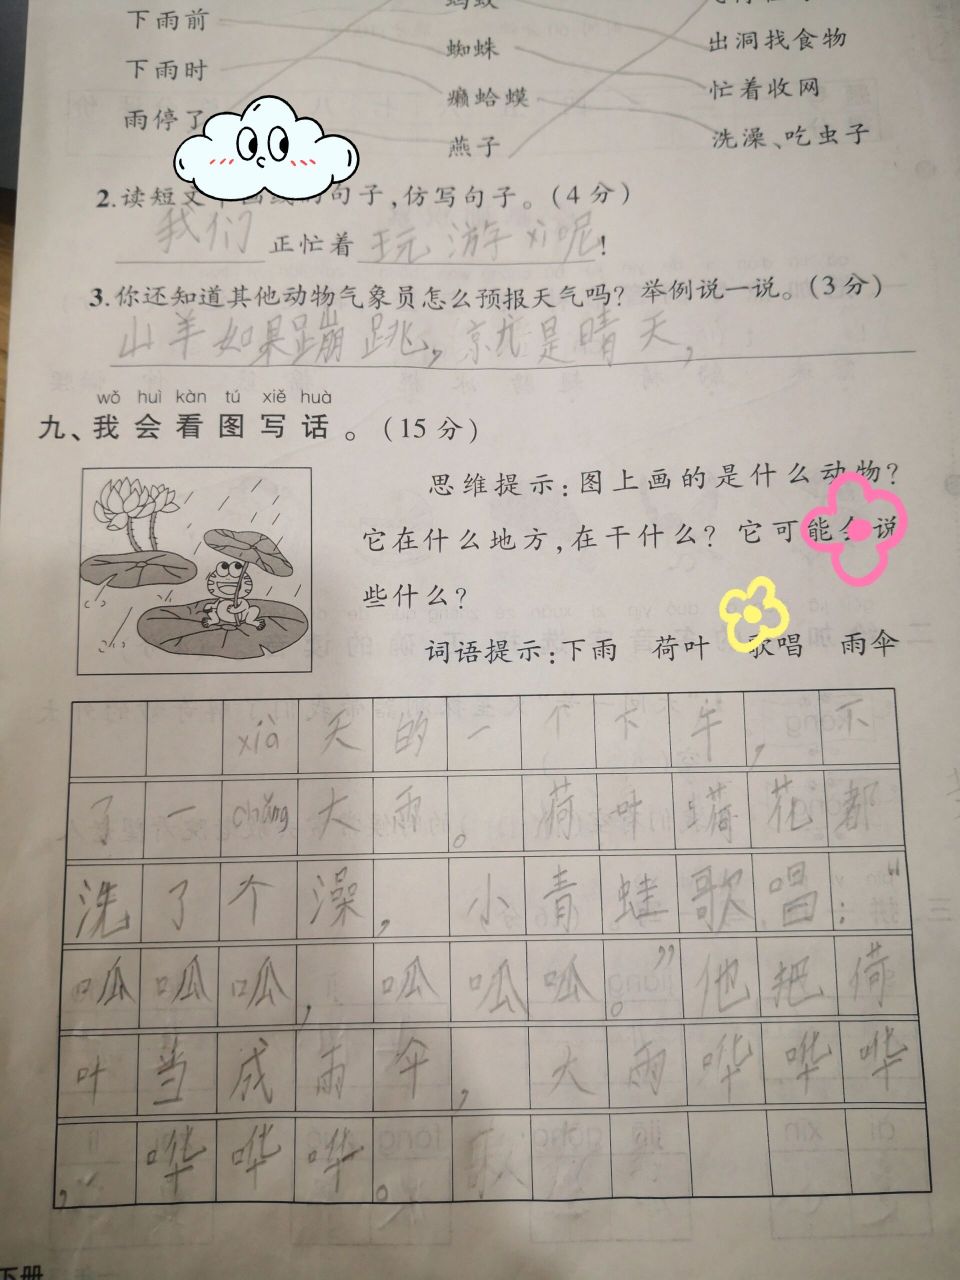 下雨前
下雨时 蜘蛛 出洞找食物
雨停了 癞蛤蟆 忙着收网
燕子 洗澡、吃虫子
2.读短文 句子,仿写句子。(4分)
我们 正忙着 玩游xì呢!
3.你还知道其他动物气象员怎么预报天气吗?举例说一说。(3分)
山羊如果蹦跳,就是晴天,
wǒ huì kàn tú xiě huà
九、我会看图写话。(15分)
思维提示:图上画的是什么动物?
它在什么地方,在干什么?它可能会说
些什么?
词语提示:下雨 荷叶 歌唱 雨伞
xià天的一个下午,下
了一chǎng大雨。荷叶 荷花都
洗了个澡,小青蛙歌唱:“
呱呱呱,呱呱呱。”他把荷
叶当成雨伞,大雨哗哗哗
,哗哗哗。
下册